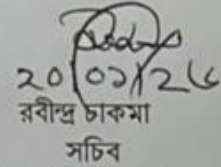 ২০/০১/২৬
রবীন্দ্র চাকমা
সচিব